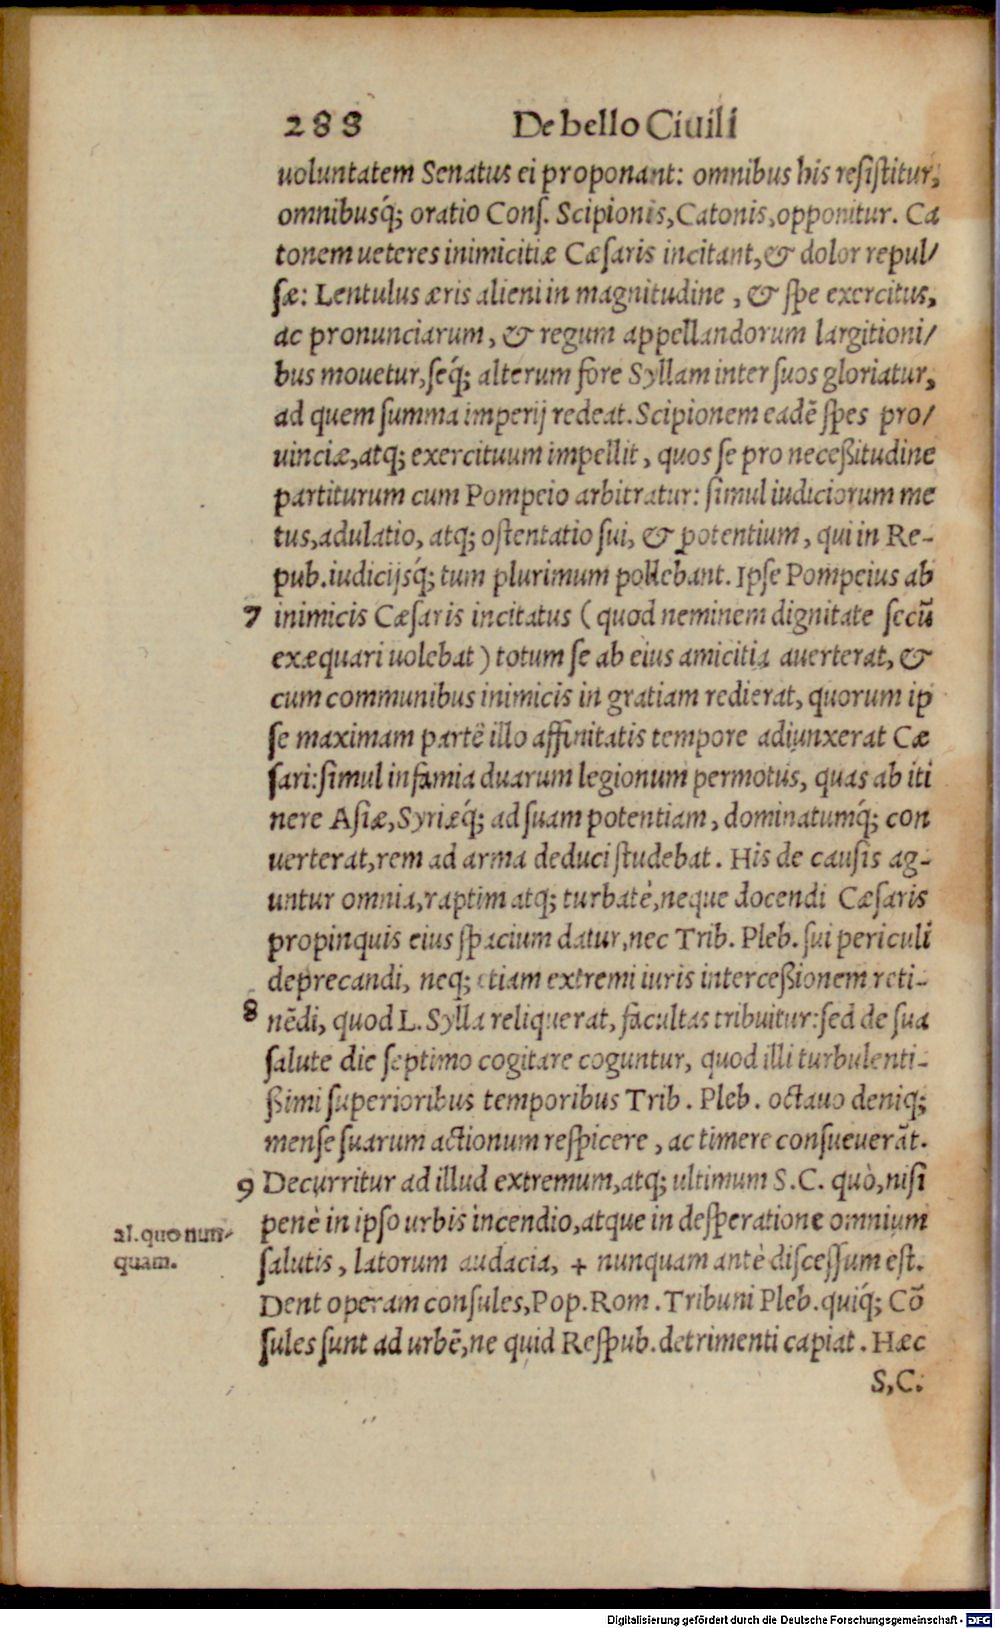 288 De bello Ciuili
uoluntatem Senatus ei proponant: omnibus his resistitur,
omnibusq́; oratio Cons. Scipionis, Catonis, opponitur. Ca
tonem ueteres inimicitiæ Cæsaris incitant, & dolor repul/
sæ: Lentulus æris alieni in magnitudine, & spe exercitus,
ac pronunciarum, & regum appellandorum largitioni/
bus mouetur, seq́; alterum fore Syllam inter suos gloriatur,
ad quem summa imperij redeat. Scipionem eadē spes pro/
uinciæ, atq; exercituum impellit, quos se pro neceßitudine
partiturum cum Pompeio arbitratur: simul iudiciorum me
tus, adulatio, atq; ostentatio sui, & potentium, qui in Re-
pub. iudicijsq́; tum plurimum pollebant. Ipse Pompeius ab
7 inimicis Cæsaris incitatus (quod neminem dignitate secū
exæquari uolebat) totum se ab eius amicitia auerterat, &
cum communibus inimicis in gratiam redierat, quorum ip
se maximam partē illo affinitatis tempore adiunxerat Cæ
sari: simul infamia duarum legionum permotus, quas ab iti
nere Asiæ, Syriæq́; ad suam potentiam, dominatumq́; con
uerterat, rem ad arma deduci studebat. His de causis ag-
untur omnia, raptim atq; turbatè, neque docendi Cæsaris
propinquis eius spacium datur, nec Trib. Pleb. sui periculi
deprecandi, neq; etiam extremi iuris interceßionem reti-
8 nēdi, quod L. Sylla reliquerat, facultas tribuitur: sed de sua
salute die septimo cogitare coguntur, quod illi turbulenti-
ßimi superioribus temporibus Trib. Pleb. octauo deniq;
mense suarum actionum respicere, ac timere consueuerāt.
9 Decurritur ad illud extremum, atq; ultimum S.C. quò, nisi
penè in ipso urbis incendio, atque in desperatione omnium
al. quo nun-
quam.
salutis, latorum audacia, + nunquam antè discessum est.
Dent operam consules, Pop. Rom. Tribuni Pleb. quiq́; Cō
sules sunt ad urbē, ne quid Respub. detrimenti capiat. Hæc
S,C.
Digitalisierung gefördert durch die Deutsche Forschungsgemeinschaft - DFG